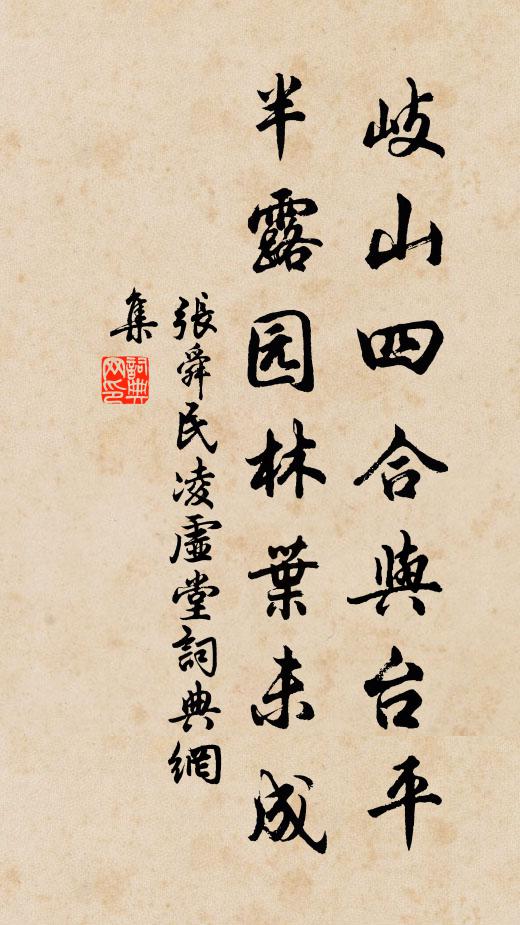 岐山四合與台平
半露园林葉未成
張舜民凌虛堂詞典網
集
詞典网印